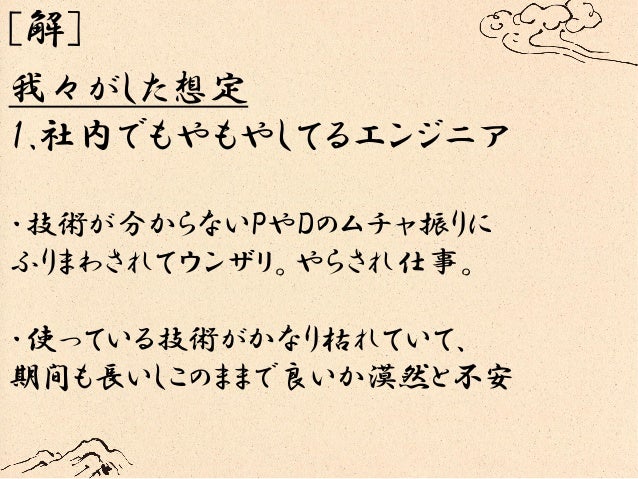 [解]
我々がした想定
1.社内でもやもやしてるエンジニア
・技術が分からないPやDのムチャ振りに
ふりまわされてウンザリ。やらされ仕事。
・使っている技術がかなり枯れていて、
期間も長いしこのままで良いか漠然と不安